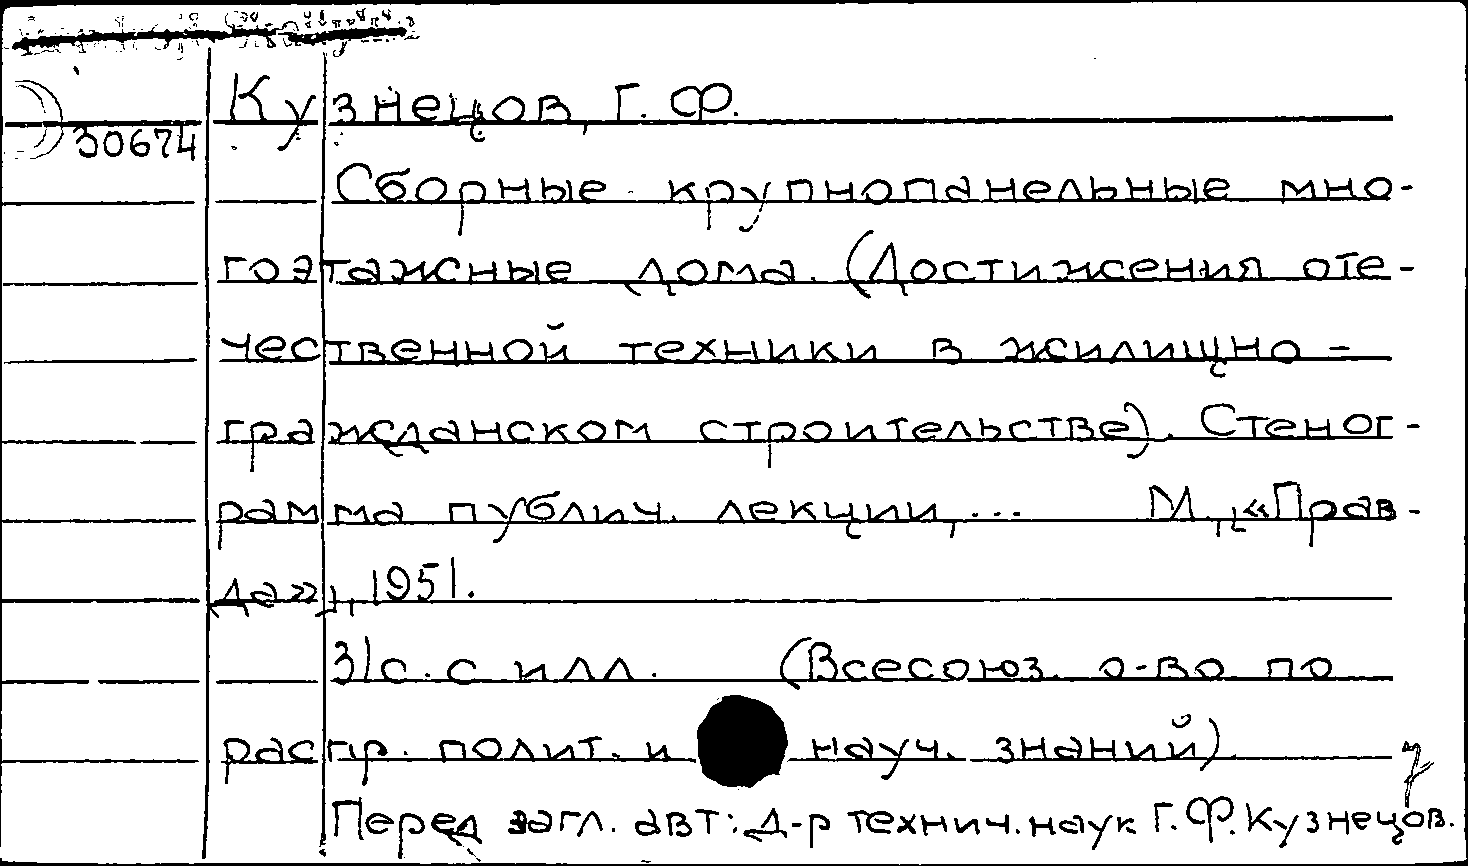 Кузнецов, Г. Ф.
30674
Сборные крупнопанельные мно-
гоэтажные дома. (Достижения оте-
чественной техники в жилищно-
гражданском строительстве). Стеног-
рамма публич. лекции, ... М., «Прав-
да», 1951.
31с. с илл. (Всесоюз. о-во по
распр. полит. и науч. знаний)
7
Перед загл. авт: Д-р технич. наук Г. Ф. Кузнецов.